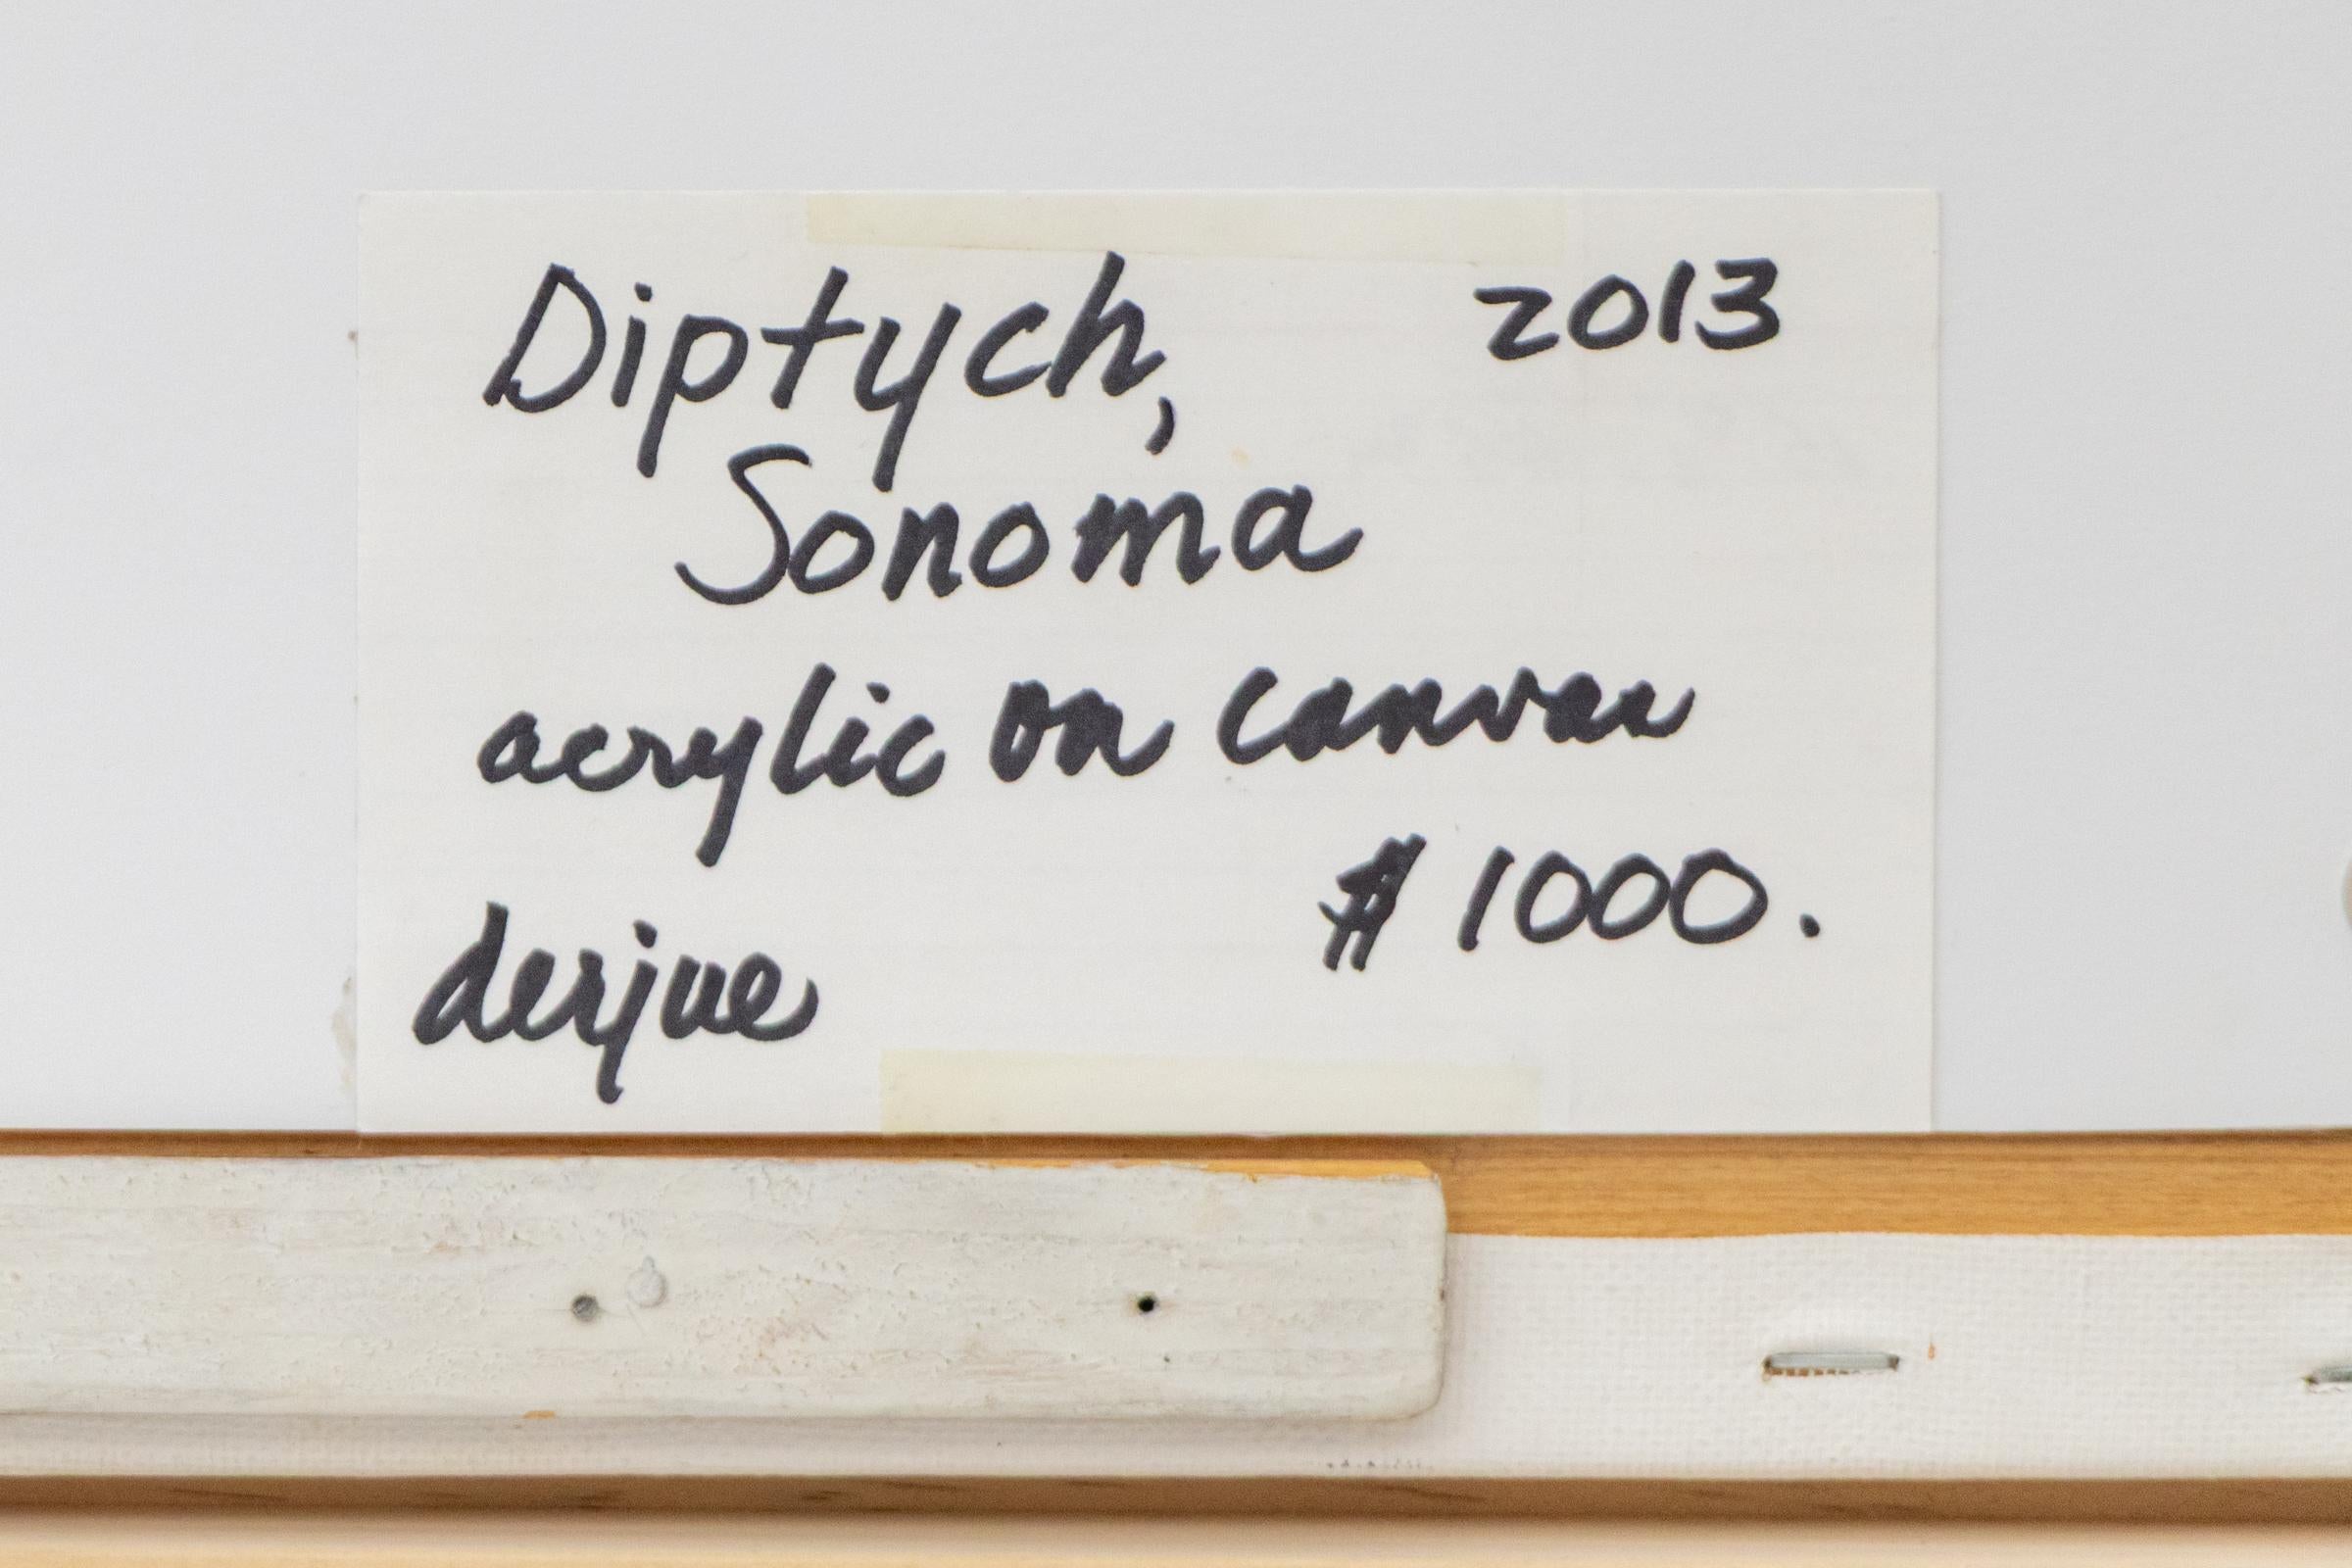 Diptych, 2013
Sonoma
acrylic on canvas
$ 1000.
derjue